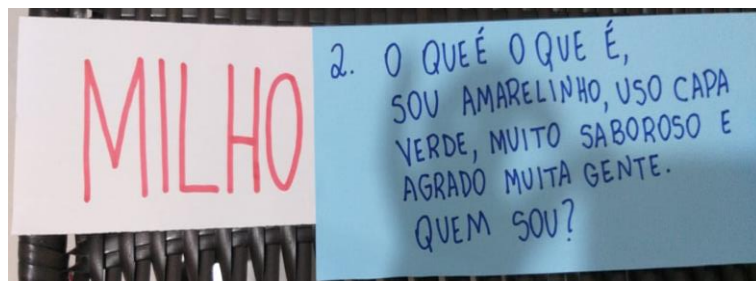 MILHO
2. O QUE É O QUE É,
SOU AMARELINHO, USO CAPA
VERDE, MUITO SABOROSO E
AGRADO MUITA GENTE.
QUEM SOU?